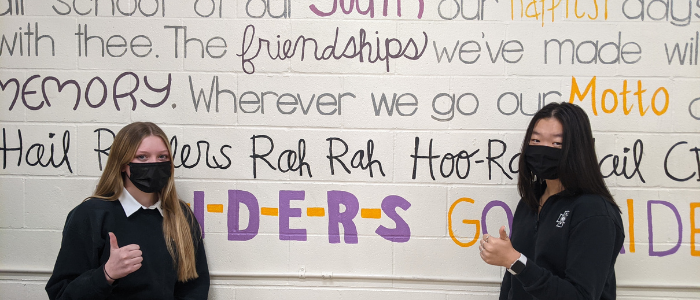 school of our youth our happiest days
with thee. The friendships we've made will
MEMORY. Wherever we go our Motto
Hail Rah Rah Hoo-Ra
I-D-E-R-S GO